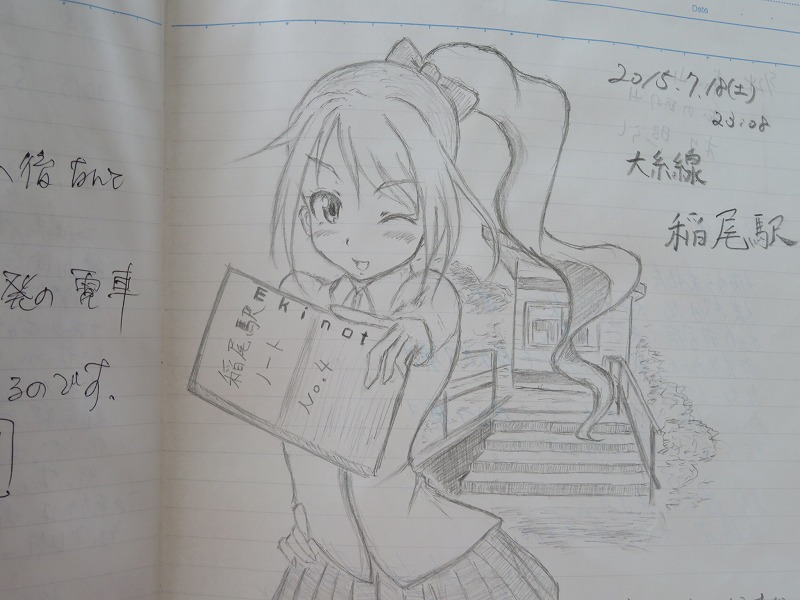 Date
2015.7.18(土)
23:08
大糸線
稲尾駅
Ekinot
稲尾駅
ノート
No.4
後なんて
発の電車
るのです。